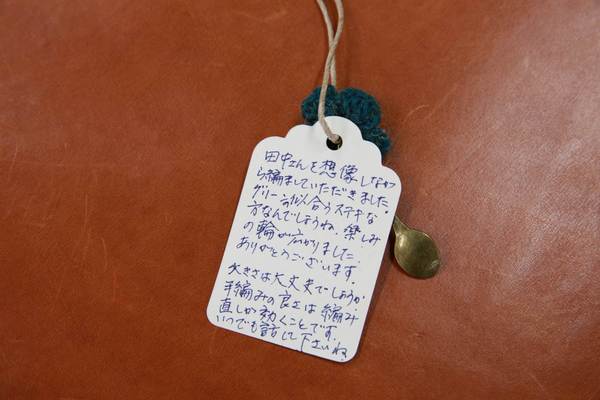 田中さんを想像しなが
ら編ましていただきました
グリーン似合うステキな
方なんでしょうね、楽しみ
の輪が広がりました
ありがとうございます。
大きさは大丈夫でしょうか
手編みの良さは編み
直しが効くことです。
いつでも話して下さいね